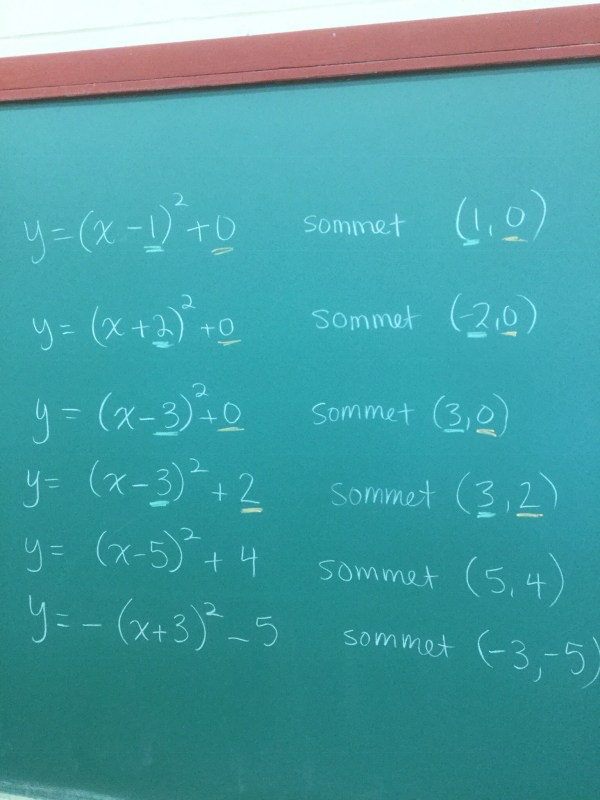 y=(x-1)²+0 sommet (1,0)
y=(x+2)²+0 sommet (-2,0)
y=(x-3)²+0 sommet (3,0)
y=(x-3)²+2 sommet (3,2)
y=(x-5)²+4 sommet (5,4)
y=-(x+3)²-5 sommet (-3,-5)